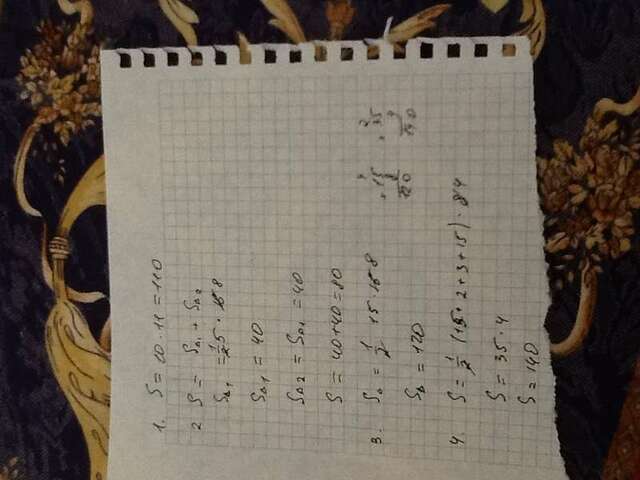 1. S = 10 · 11 = 110
2 S = S△1 + S△2
S△1 = 1/2 5 · 8
S△1 = 40
S△2 = S△1 = 40
S = 40+40 = 80
3. S△ = 1/2 15 · 8
S△ = 120
4. S = 1/2 (15 + 2 + 3 + 15) ·
S = 35 · 4
S = 140
15
8
120
35
140